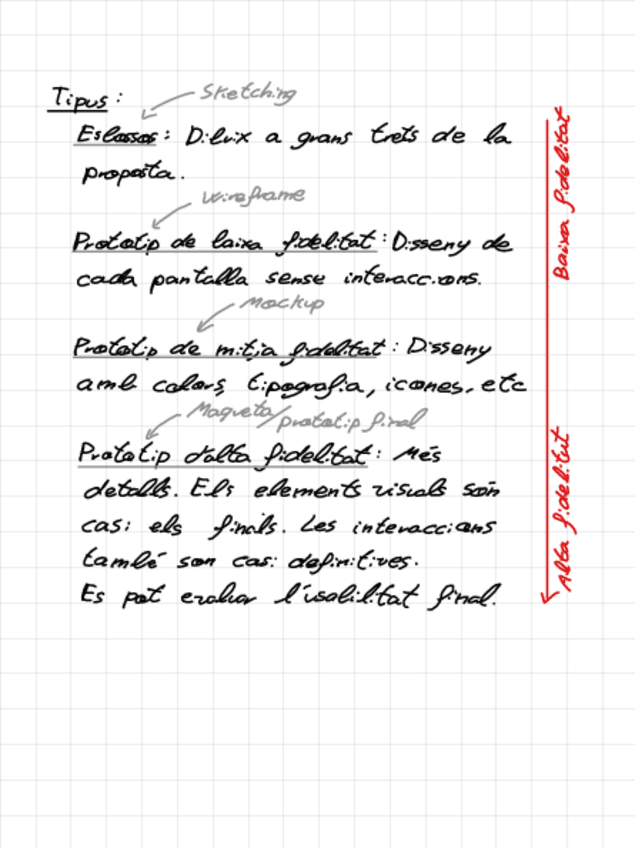 Tipus:
Sketching
Esbossos: Dibuix a grans trets de la
proposta.
Wireframe
Prototip de baixa fidelitat: Disseny de
cada pantalla sense interaccions.
Mockup
Prototip de mitja fidelitat: Disseny
amb colors, tipografia, icones, etc
Maqueta/prototip final
Prototip d'alta fidelitat: Més
detalls. Els elements visuals són
casi els finals. Les interaccions
també son casi definitives.
Es pot evaluar l'usabilitat final.
Baixa fidelitat
Alta fidelitat